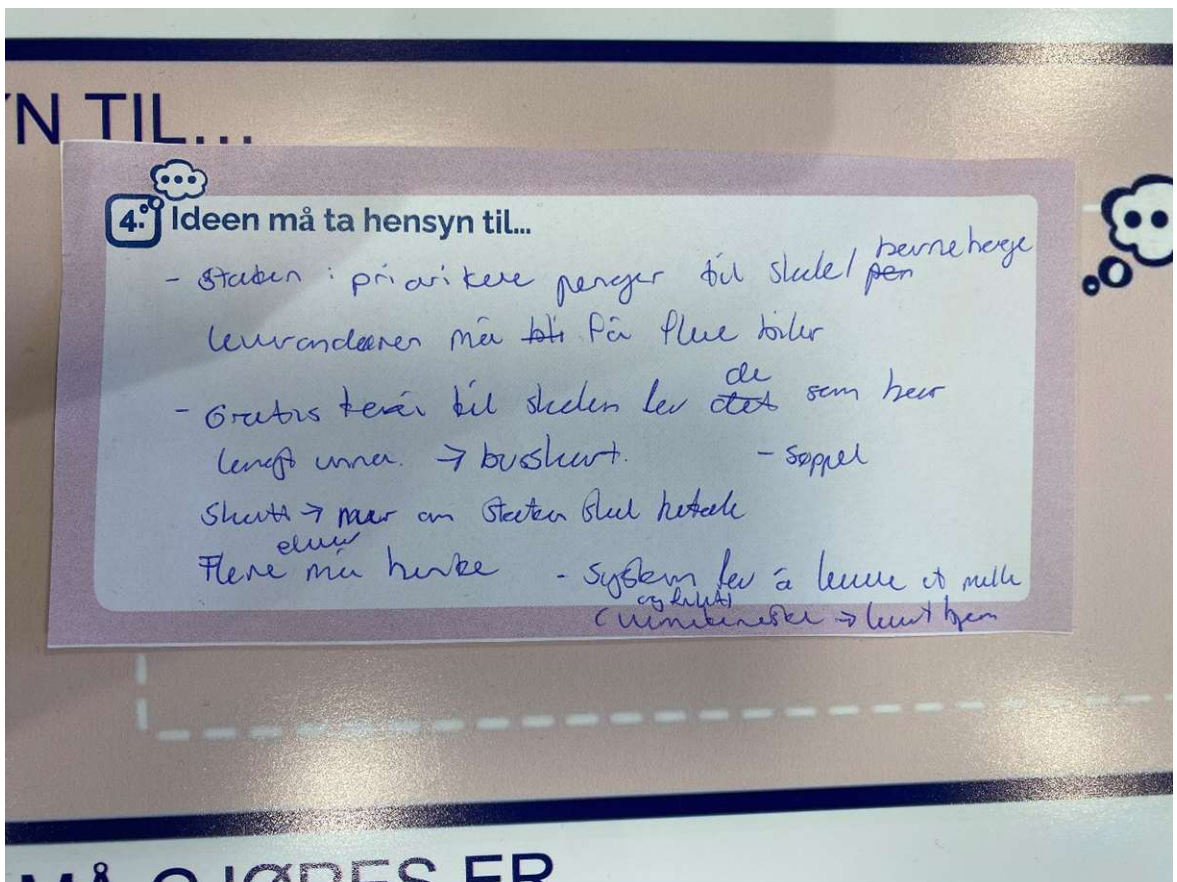 N TIL...
4. Ideen må ta hensyn til...
- Staten : prioritere penger til skole / barnehage
leverandøren må få flere biler
- Gratis til skolen for de som bor
langt unna. → busskort.
- Søppel
Skatt → mer om Staten skal betale
eller
Flere må
- System for å levere
→
MÅ GJØRES ER